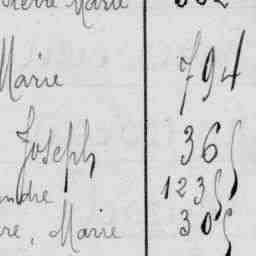 Marie
Marie 794
Joseph 36
123
Marie 30